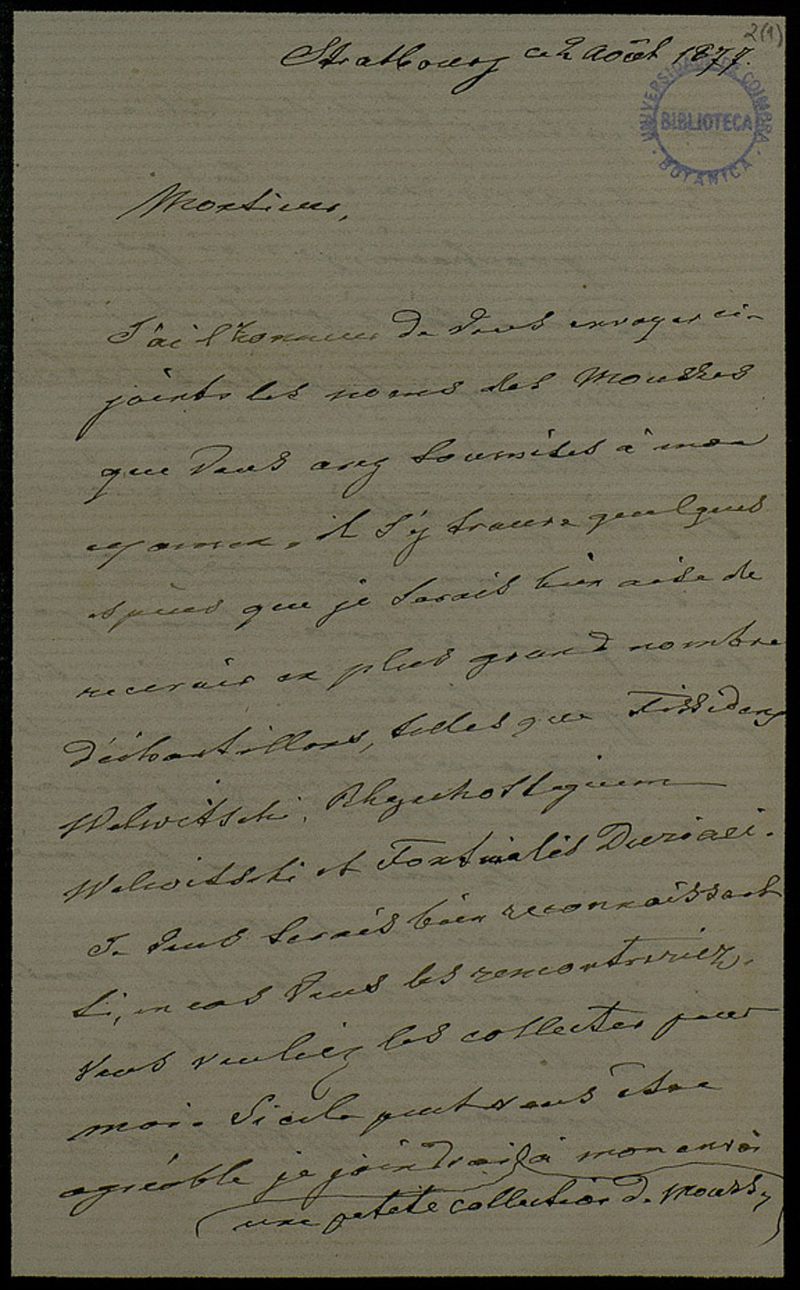 2(1)
Strasbourg ce 2 Août 1877.
UNIVERSIDADE DE COIMBRA
BIBLIOTECA
BOTANICA
Monsieur,
J'ai l'honneur de vous envoyer ci-
joints les noms des Mousses
que vous avez soumises à mon
examen, il s'y trouve quelques
espèces que je serais bien aise de
recevoir en plus grand nombre
d'échantillons, telles que Fissidens
Welwitschi, Rhynchostegium
Welwitschi et Fontinalis Duriaei.
Je vous serais bien reconnaissant
si, en cas vous les rencontreriez,
vous vouliez les collecter pour
moi. Si cela peut vous être
agréable je joindrai à mon envoi
une petite collection de Mousses